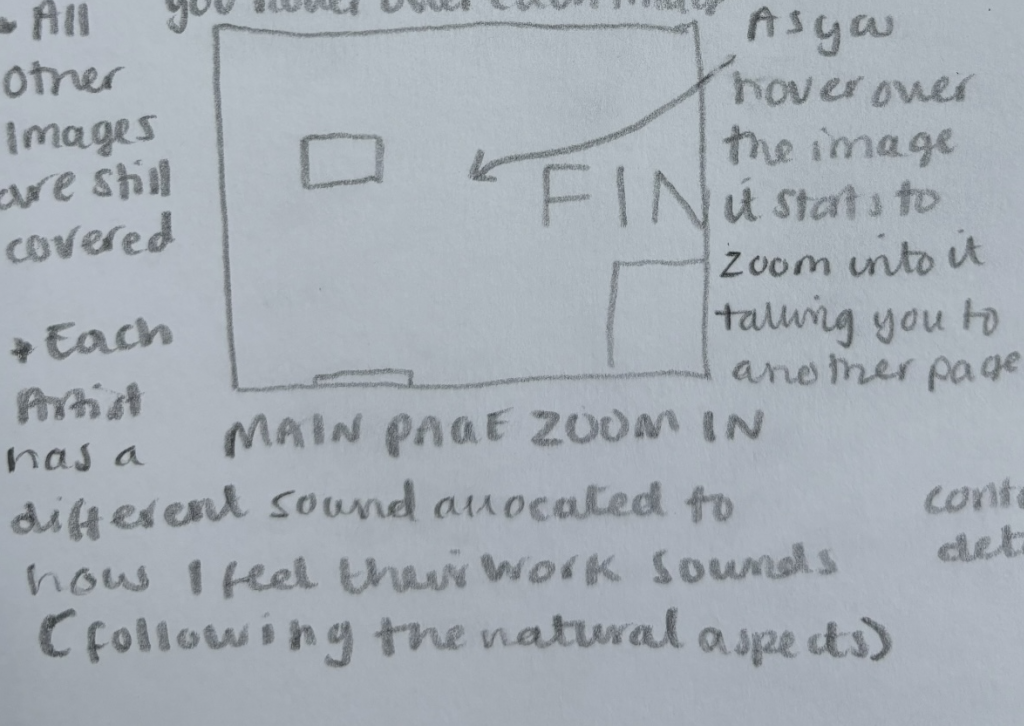 you hover over each image
→ All
other
Images
are still
covered
FIN
As you
hover over
the image
it stats to
zoom into it
taking you to
another page
MAIN PAGE ZOOM IN
→ Each
Artist
has a
different sound allocated to
how I feel their work sounds
(following the natural aspects)